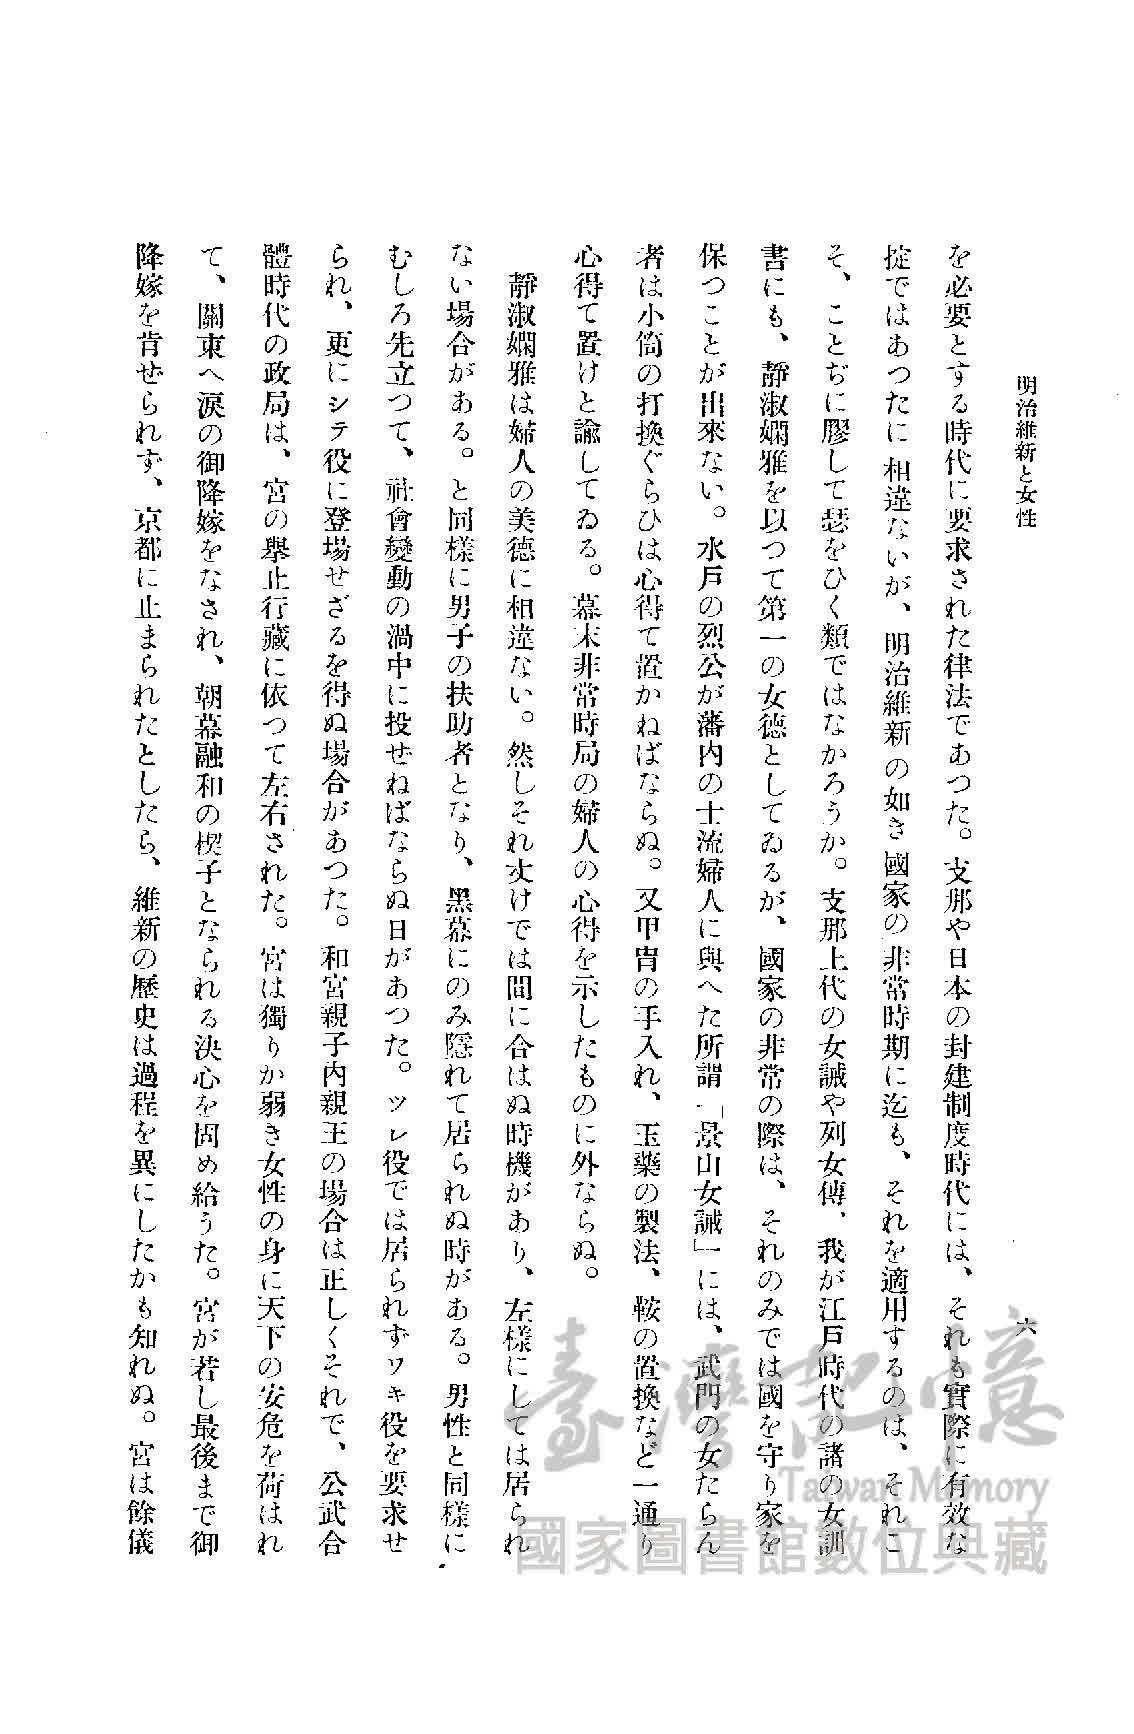 明治維新と女性
六
を必要とする時代に要求された律法であつた。支那や日本の封建制度時代には、それも實際に有效な
掟ではあつたに相違ないが、明治維新の如き國家の非常時期に迄も、それを適用するのは、それこ
そ、ことぢに膠して瑟をひく類ではなかろうか。支那上代の女誡や列女傳、我が江戸時代の諸の女訓
書にも、靜淑嫻雅を以つて第一の女德としてゐるが、國家の非常の際は、それのみでは國を守り家を
保つことが出來ない。水戸の烈公が藩内の士流婦人に與へた所謂「景山女誡」には、武門の女たらん
者は小筒の打換ぐらひは心得て置かねばならぬ。又甲冑の手入れ、玉藥の製法、鞍の置換など一通り
心得て置けと諭してゐる。幕末非常時局の婦人の心得を示したものに外ならぬ。
靜淑嫻雅は婦人の美德に相違ない。然しそれ丈けでは間に合はぬ時機があり、左樣にしては居られ
ない場合がある。と同樣に男子の扶助者となり、黑幕にのみ隱れて居られぬ時がある。男性と同樣に
むしろ先立つて、社會變動の渦中に投ぜねばならぬ日があつた。ツレ役では居られずワキ役を要求せ
られ、更にシテ役に登場せざるを得ぬ場合があつた。和宮親子内親王の場合は正しくそれで、公武合
體時代の政局は、宮の擧止行藏に依つて左右された。宮は獨りか弱き女性の身に天下の安危を荷はれ
て、關東へ淚の御降嫁をなされ、朝幕融和の楔子となられる決心を固め給うた。宮が若し最後まで御
降嫁を肯ぜられず、京都に止まられたとしたら、維新の歷史は過程を異にしたかも知れぬ。宮は餘儀
臺灣記憶
Taiwan Memory
國家圖書館數位典藏